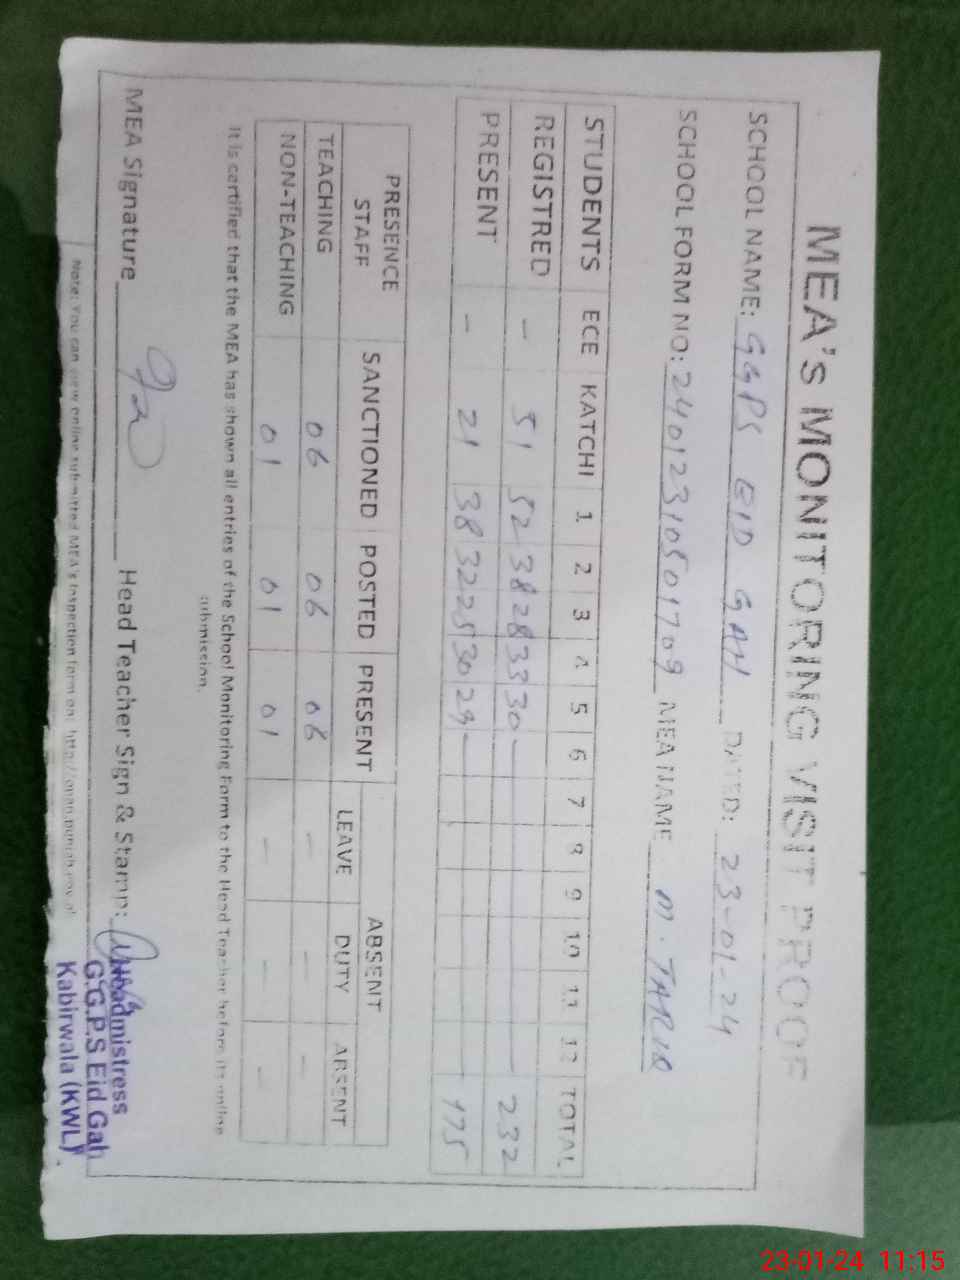 MEA's MONITORING VISIT PROOF
SCHOOL NAME: GGPS EID GAH DATED: 23-01-24
SCHOOL FORM NO: 24012310501709 MEA NAME M. TARIQ
STUDENTS ECE KATCHI 1 2 3 4 5 6 7 8 9 10 11 12 TOTAL
REGISTRED - 51 52 38 28 33 30 - 232
PRESENT - 21 38 32 25 30 29 - 175
PRESENCE STAFF SANCTIONED POSTED PRESENT ABSENT
LEAVE DUTY ABSENT
TEACHING 06 06 06 - - -
NON-TEACHING 01 01 01 - - -
It is certified that the MEA has shown all entries of the School Monitoring Form to the Head Teacher before its online
submission.
MEA Signature Head Teacher Sign & Stamp:
Headmistress
G.G.P.S Eid Gah
Kabirwala (KWL)
Note: You can view online submitted MEA's Inspection form on:
23-01-24 11:15